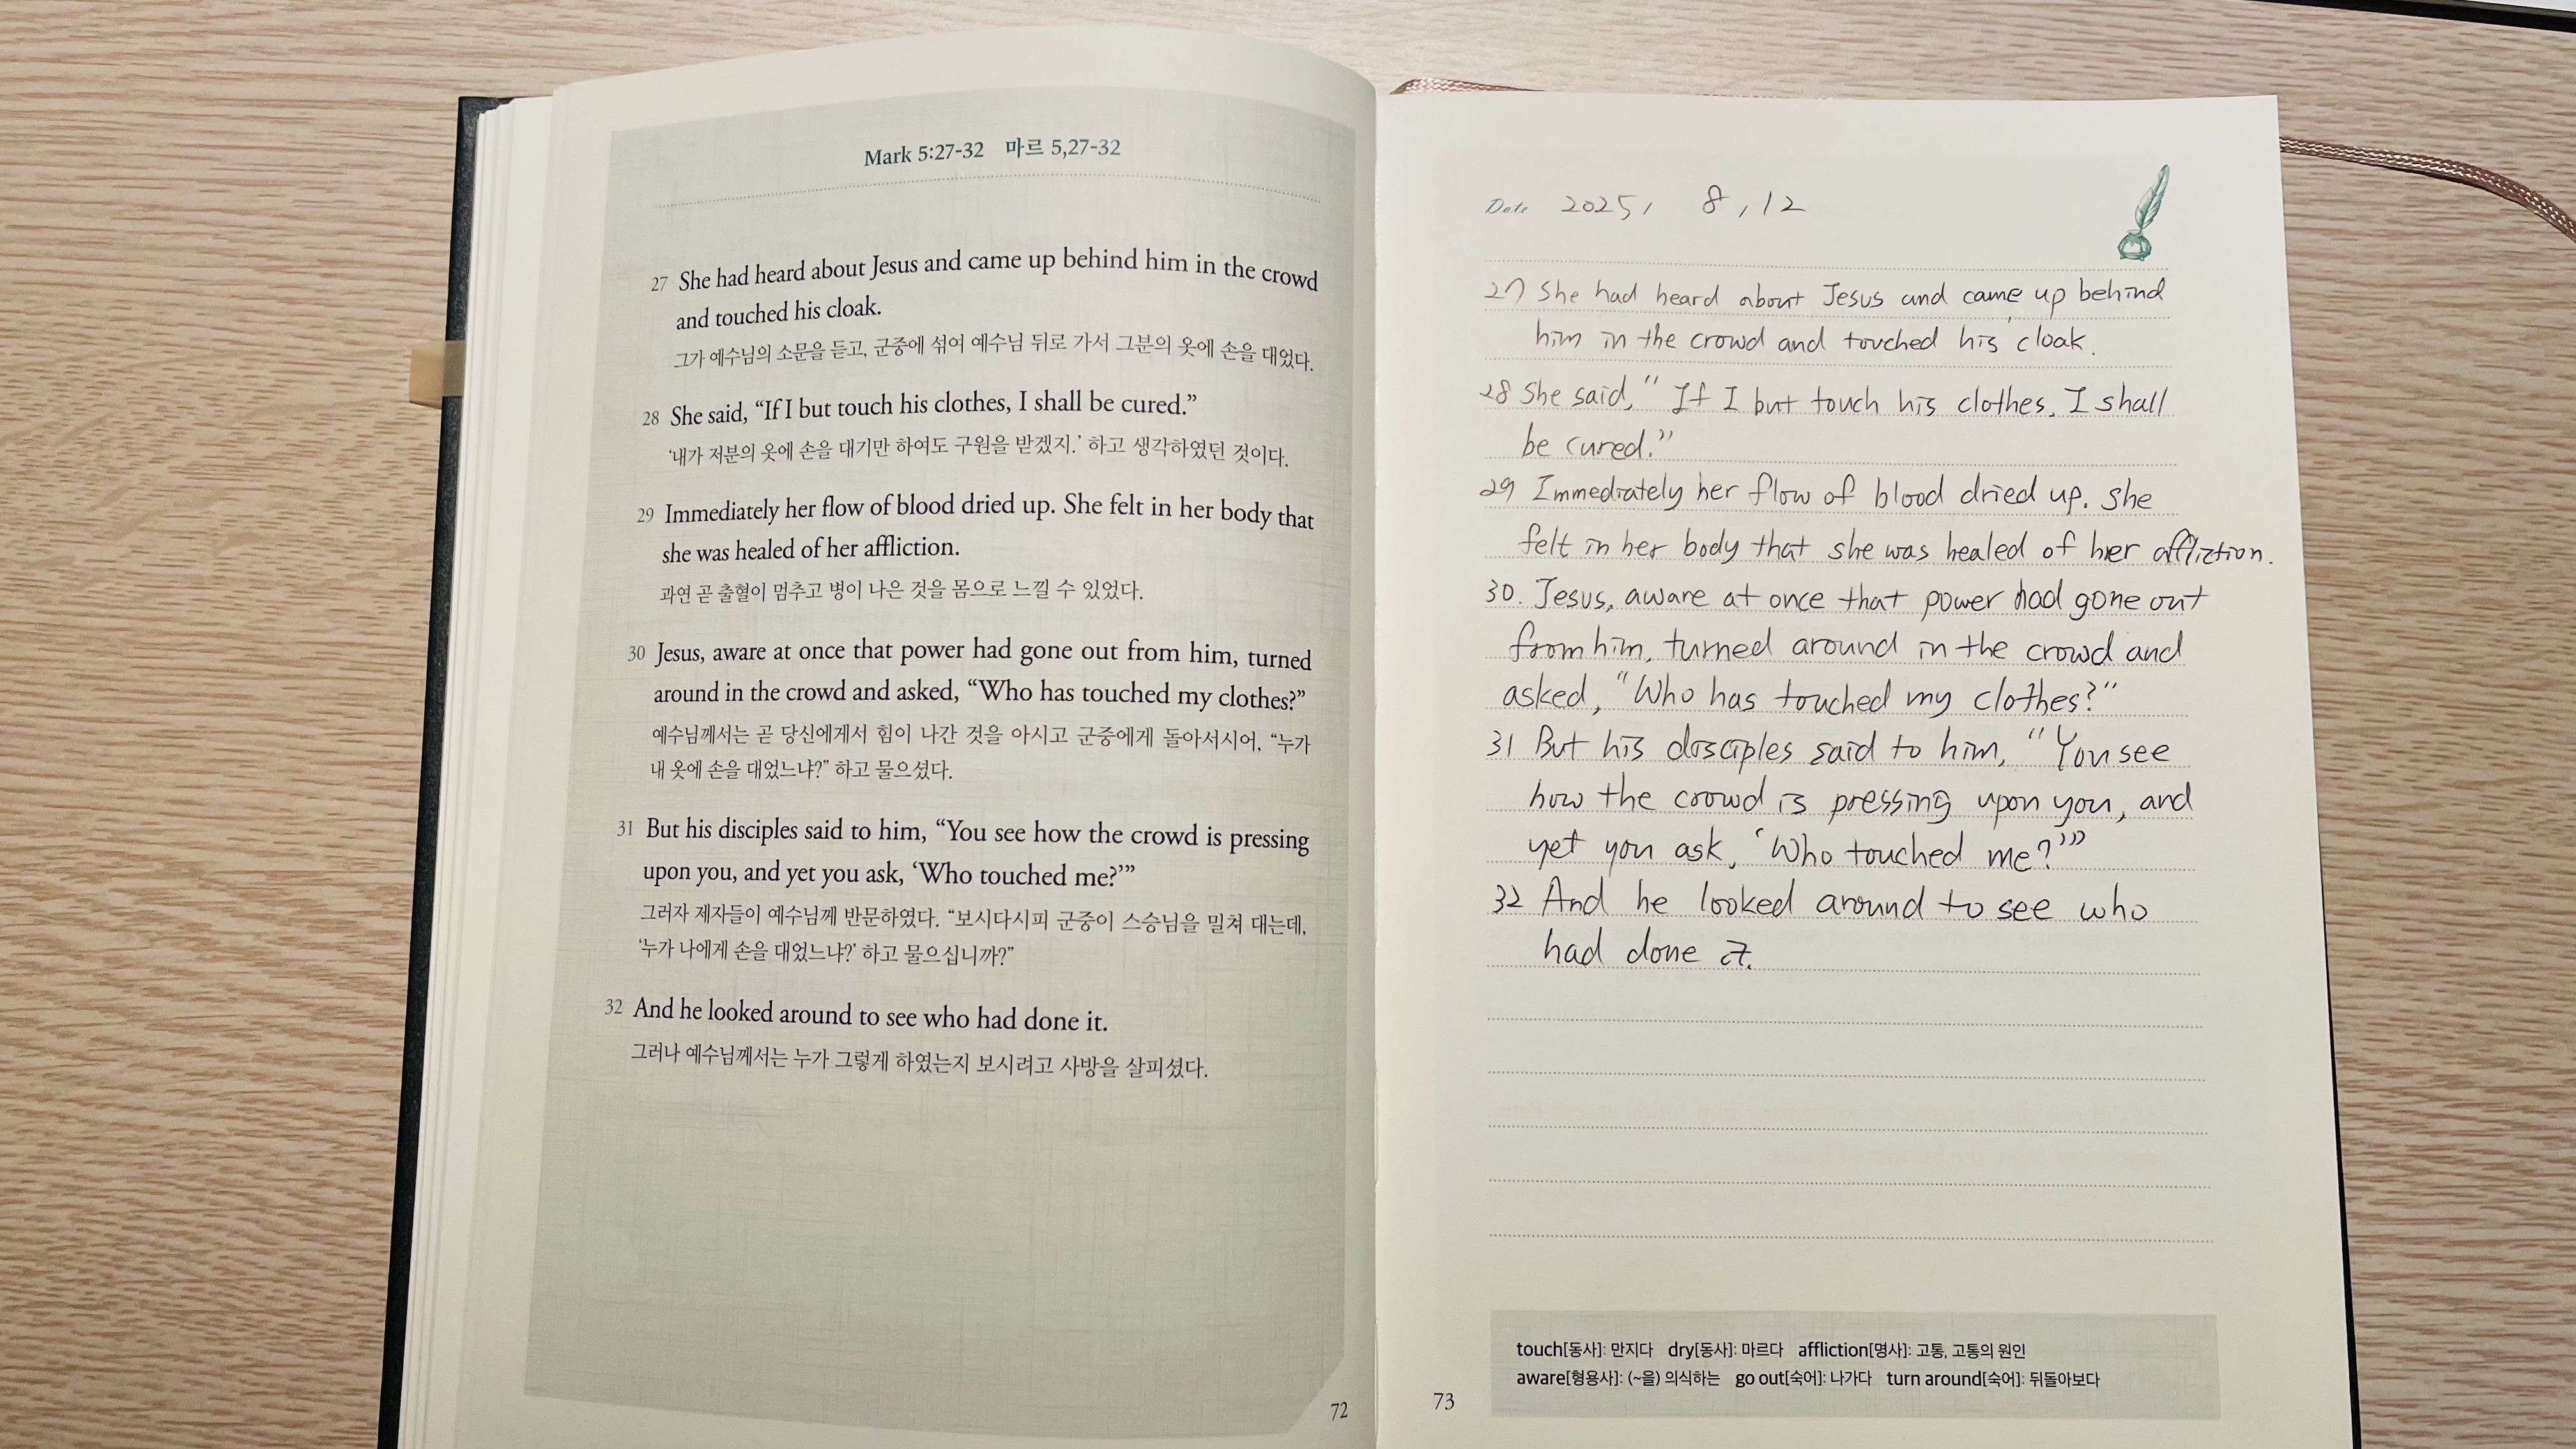 Mark 5:27-32 마르 5,27-32
27 She had heard about Jesus and came up behind him in the crowd
and touched his cloak.
그가 예수님의 소문을 듣고, 군중에 섞여 예수님 뒤로 가서 그분의 옷에 손을 대었다.
28 She said, “If I but touch his clothes, I shall be cured.”
‘내가 저분의 옷에 손을 대기만 하여도 구원을 받겠지.’ 하고 생각하였던 것이다.
29 Immediately her flow of blood dried up. She felt in her body that
she was healed of her affliction.
과연 곧 출혈이 멈추고 병이 나은 것을 몸으로 느낄 수 있었다.
30 Jesus, aware at once that power had gone out from him, turned
around in the crowd and asked, “Who has touched my clothes?”
예수님께서는 곧 당신에게서 힘이 나간 것을 아시고 군중에게 돌아서시어, “누가
내 옷에 손을 대었느냐?” 하고 물으셨다.
31 But his disciples said to him, “You see how the crowd is pressing
upon you, and yet you ask, ‘Who touched me?’”
그러자 제자들이 예수님께 반문하였다. “보시다시피 군중이 스승님을 밀쳐 대는데,
‘누가 나에게 손을 대었느냐?’ 하고 물으십니까?”
32 And he looked around to see who had done it.
그러나 예수님께서는 누가 그렇게 하였는지 보시려고 사방을 살피셨다.
72
Date 2025, 8, 12
27 She had heard about Jesus and came up behind
him in the crowd and touched his cloak.
28 She said, “If I but touch his clothes, I shall
be cured.”
29 Immediately her flow of blood dried up. She
felt in her body that she was healed of her affliction.
30. Jesus, aware at once that power had gone out
from him, turned around in the crowd and
asked, “Who has touched my clothes?”
31 But his disciples said to him, “You see
how the crowd is pressing upon you, and
yet you ask, ‘Who touched me?’”
32 And he looked around to see who
had done it.
touch[동사]: 만지다 dry[동사]: 마르다 affliction[명사]: 고통, 고통의 원인
aware[형용사]: (~을) 의식하는 go out[숙어]: 나가다 turn around[숙어]: 뒤돌아보다
73